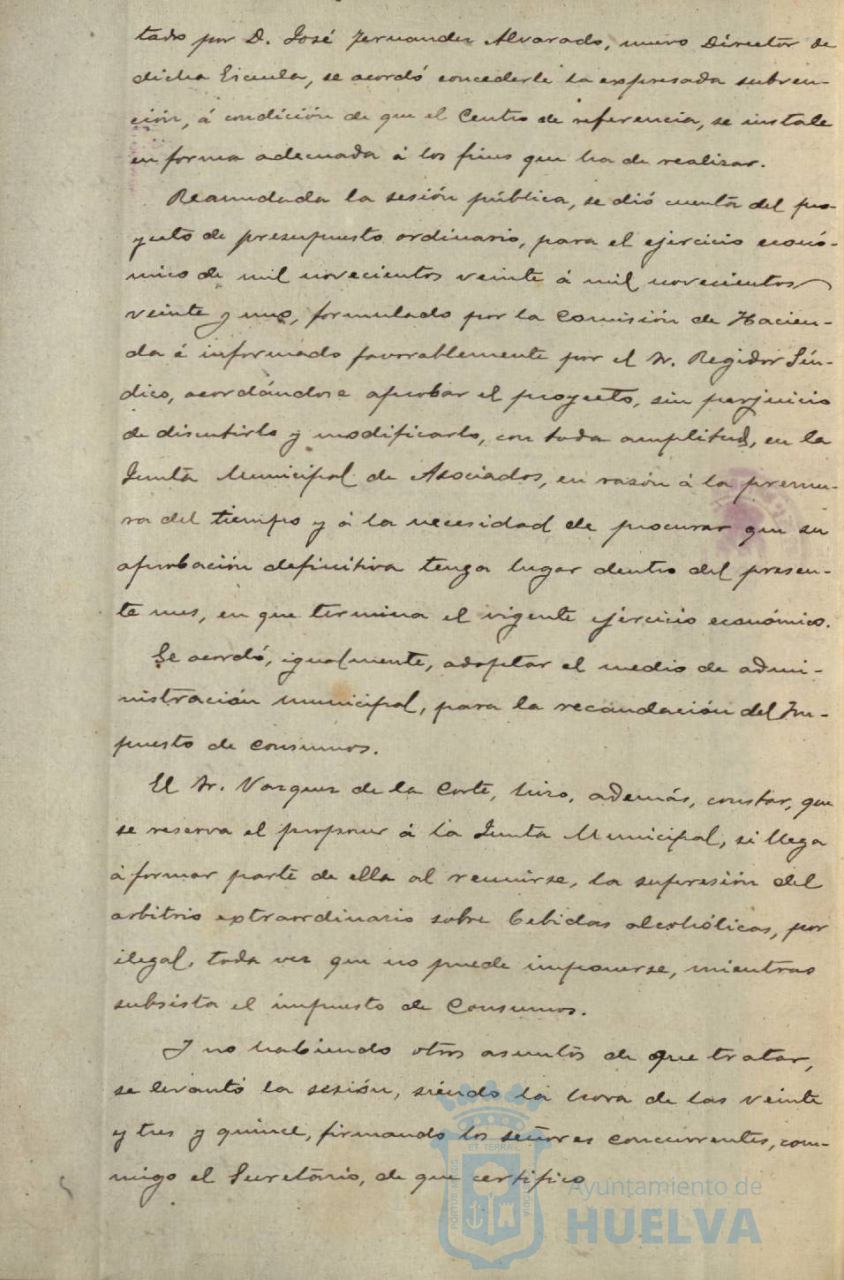 tado por D. José Fernandez Alvarado, nuevo Director de
dicha Escuela, se acordó concederle la expresada subven-
ción, á condición de que el Centro de referencia, se instale
en forma adecuada á los fines que ha de realizar.
Reanudada la sesión pública, se dió cuenta del pro-
yecto de presupuesto ordinario, para el ejercicio econó-
mico de mil novecientos veinte á mil novecientos
veinte y uno, formulado por la Comisión de Hacien-
da é informado favorablemente por el Sr. Regidor Sín-
dico, acordándose aprobar el proyecto, sin perjuicio
de discutirlo y modificarlo, con toda amplitud, en la
Junta Municipal de Asociados, en razón á la premu-
ra del tiempo y á la necesidad de procurar que su
aprobación definitiva tenga lugar dentro del presen-
te mes, en que termina el vigente ejercicio económico.
Se acordó, igualmente, adoptar el medio de admi-
nistración municipal, para la recaudación del Im-
puesto de Consumos.
El Sr. Vazquez de la Corte, hizo, además, constar, que
se reserva el proponer á la Junta Municipal, si llega
á formar parte de ella al reunirse, la supresión del
arbitrio extraordinario sobre bebidas alcohólicas, por
ilegal, toda vez que no puede imponerse, mientras
subsista el impuesto de Consumos.
Y no habiendo otros asuntos de que tratar,
se levantó la sesión, siendo la hora de las veinte
y tres y quince, firmando los señores concurrentes, con-
migo el Secretario, de que certifico
Ayuntamiento de
HUELVA